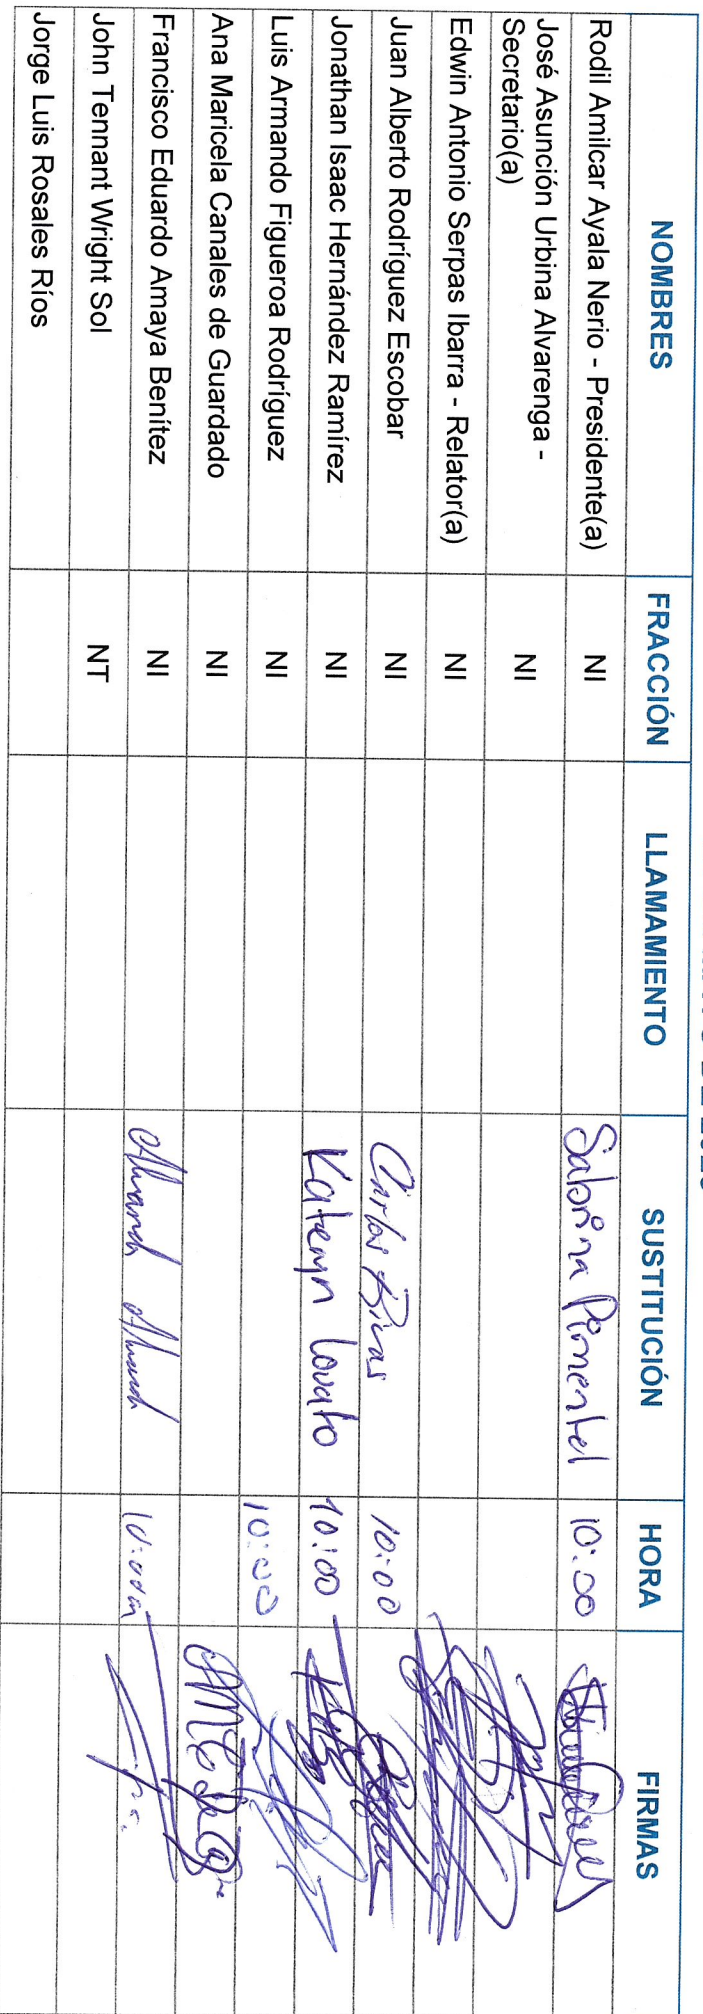 NOMBRES FRACCIÓN LLAMAMIENTO SUSTITUCIÓN HORA FIRMAS
Rodil Amilcar Ayala Nerio - Presidente(a) NI Sabrina Pimentel 10:00
José Asunción Urbina Alvarenga -
Secretario(a) NI
Edwin Antonio Serpas Ibarra - Relator(a) NI
Juan Alberto Rodríguez Escobar NI Carlos Rivas 10:00
Jonathan Isaac Hernández Ramírez NI Kateryn Lovato 10:00
Luis Armando Figueroa Rodríguez NI 10:00
Ana Maricela Canales de Guardado NI
Francisco Eduardo Amaya Benítez NI 10:00am
John Tennant Wright Sol NT
Jorge Luis Rosales Ríos